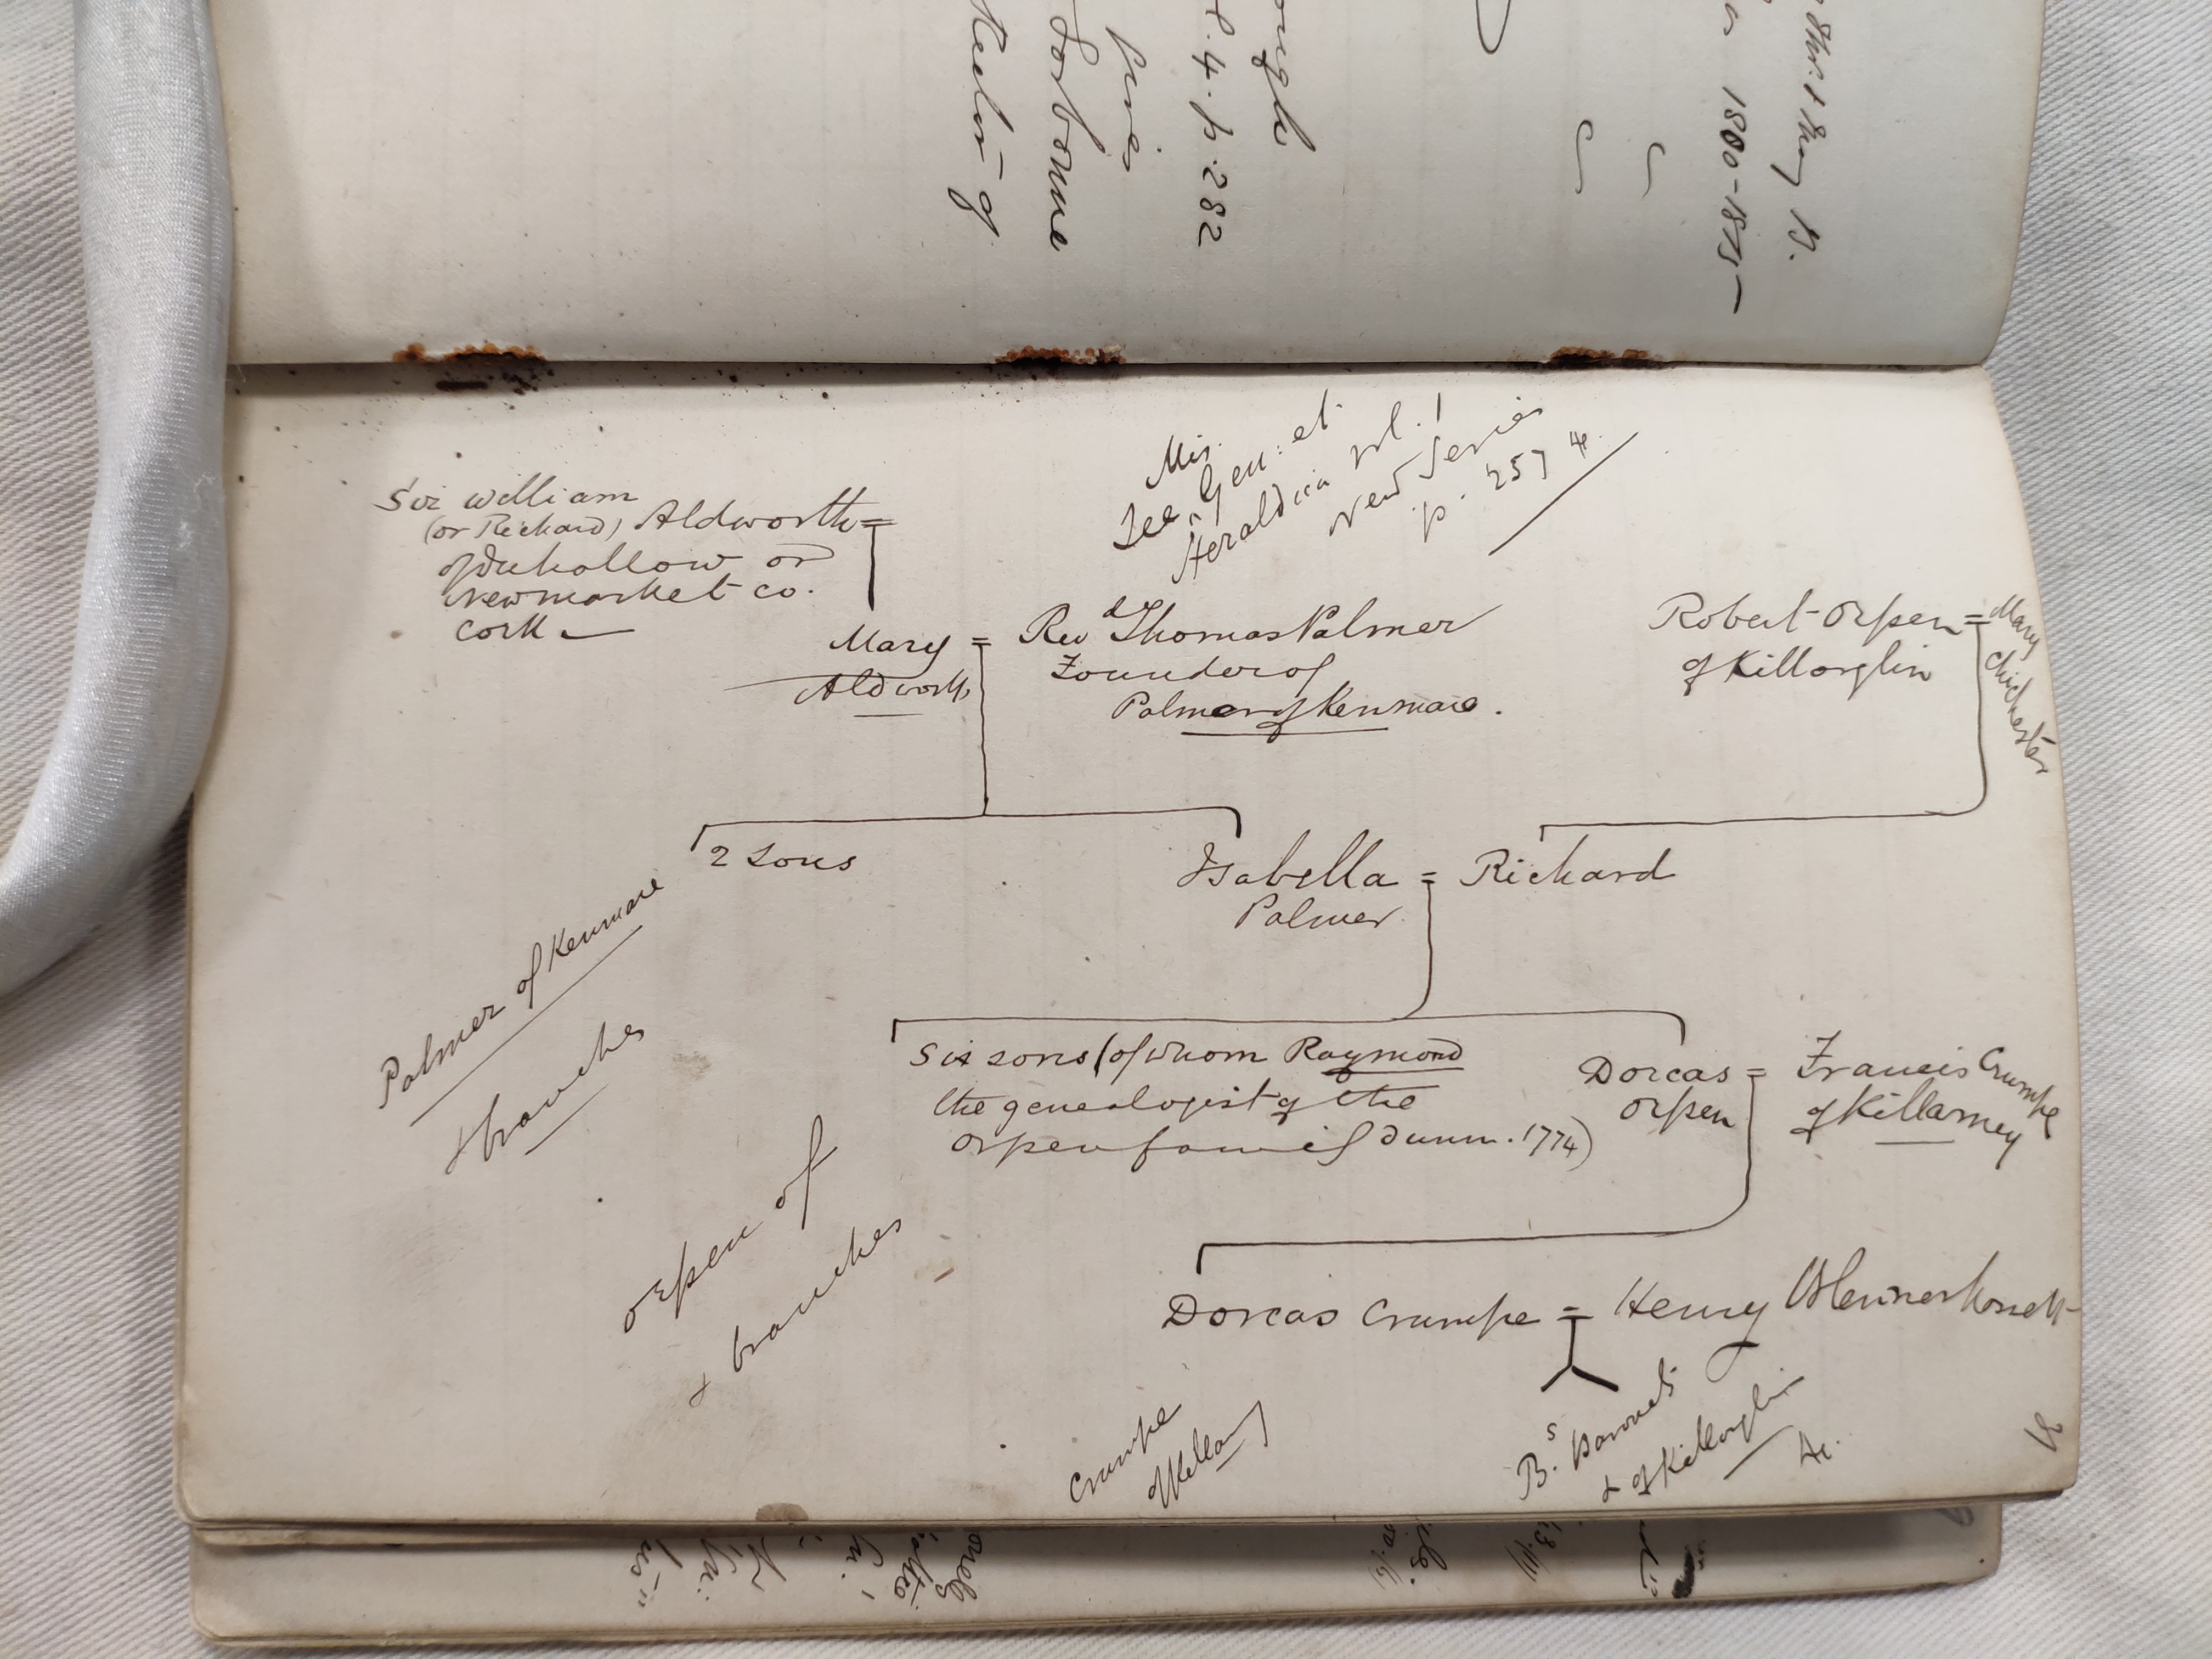 ough
l. 4. p. 282
Sorbonne
1800-1875
Mis.
See Gen: et
Heraldica vol. 1
New Series
p. 257 &c.
Sir William
(or Richard) Aldworth =
of Duhallow or
Newmarket co.
Cork
Mary = Revd Thomas Palmer
Aldworth
Founder of
Palmer of Kenmare.
Robert Orpen = Mary Chichester
of Killorglin
2 Sons
Isabella = Richard
Palmer
Palmer of Kenmare
& branches
Six sons (of whom Raymond
the genealogist of the
Orpen family d unm. 1774)
Dorcas = Francis Crumpe
Orpen
of Killarney
Orpen of
& branches
Dorcas Crumpe = Henry Blennerhassett
Crumpe
of Killarney
B.s Baronets
& of Killorglin
&c.